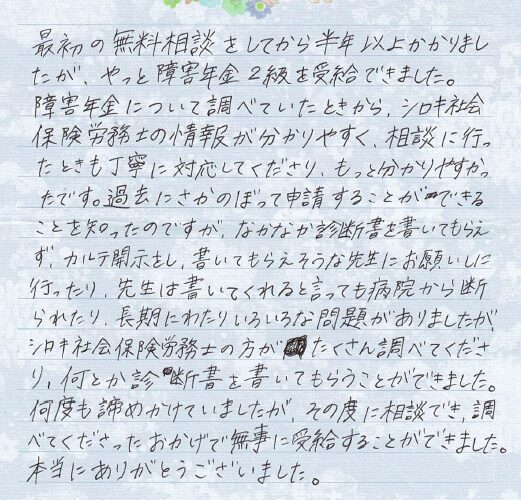 最初の無料相談をしてから半年以上かかりまし
たが、やっと障害年金2級を受給できました。
障害年金について調べていたときから、シロキ社会
保険労務士の情報が分かりやすく、相談に行っ
たときも丁寧に対応してくださり、もっと分かりやすかっ
たです。過去にさかのぼって申請することができる
ことを知ったのですが、なかなか診断書を書いてもらえ
ず、カルテ開示をし、書いてもらえそうな先生にお願いしに
行ったり、先生は書いてくれると言っても病院から断
られたり、長期にわたりいろいろな問題がありましたが、
シロキ社会保険労務士の方がたくさん調べてくださ
り、何とか診断書を書いてもらうことができました。
何度も諦めかけていましたが、その度に相談でき、調
べてくださったおかげで無事に受給することができました。
本当にありがとうございました。